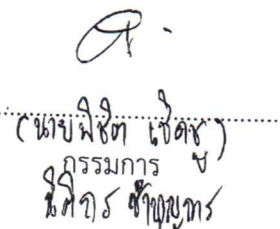 (นายพิชิต เชิดชู)
กรรมการ
นิติกร ชำนาญการ